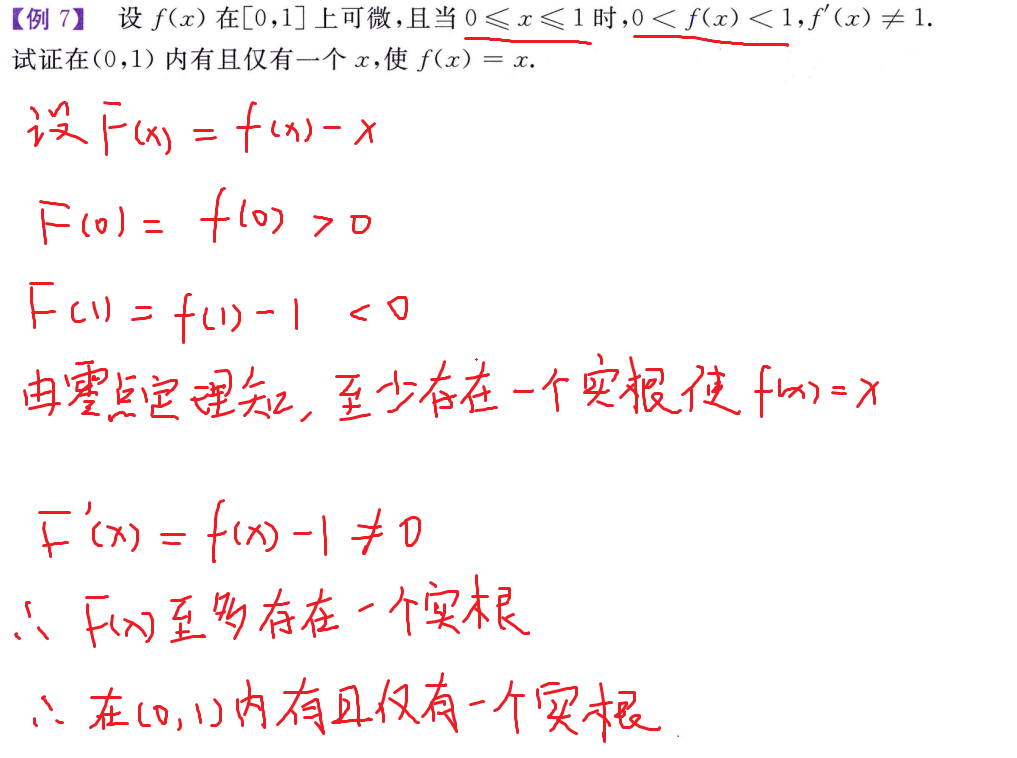 【例 7】 设 f(x) 在[0,1]上可微,且当 0⩽x⩽1 时,0<f(x)<1,f′(x)≠1.
试证在(0,1)内有且仅有一个 x,使 f(x)=x.
设 F(x) = f(x)-x
F(0) = f(0) > 0
F(1) = f(1)-1 < 0
由零点定理知, 至少存在一个实根使 f(x)=x
F'(x) = f(x)-1 ≠ 0
∴ F(x)至多存在一个实根
∴ 在(0,1)内有且仅有一个实根.